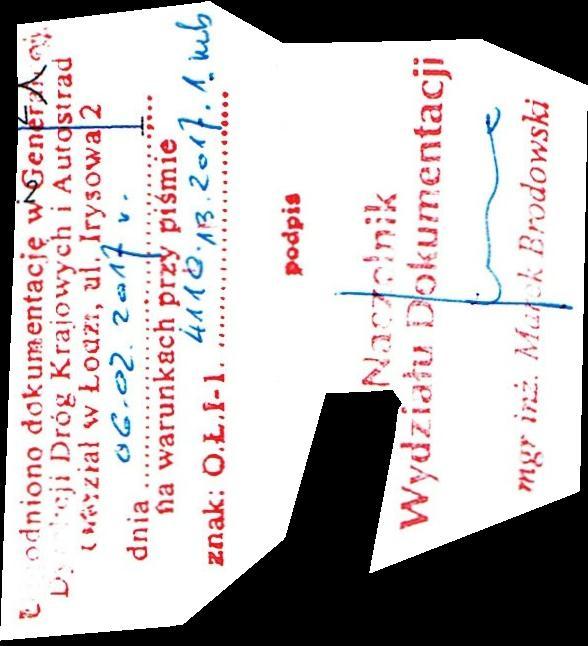 Uzgodniono dokumentację w Generalnej
Dyrekcji Dróg Krajowych i Autostrad
Oddział w Łodzi, ul. Irysowa 2
dnia 06.02.2017 r.
na warunkach przy piśmie
znak: O.Ł.I-1. 4110.13.2017.1.mb
podpis
Naczelnik
Wydziału Dokumentacji
mgr inż. Marek Brodowski